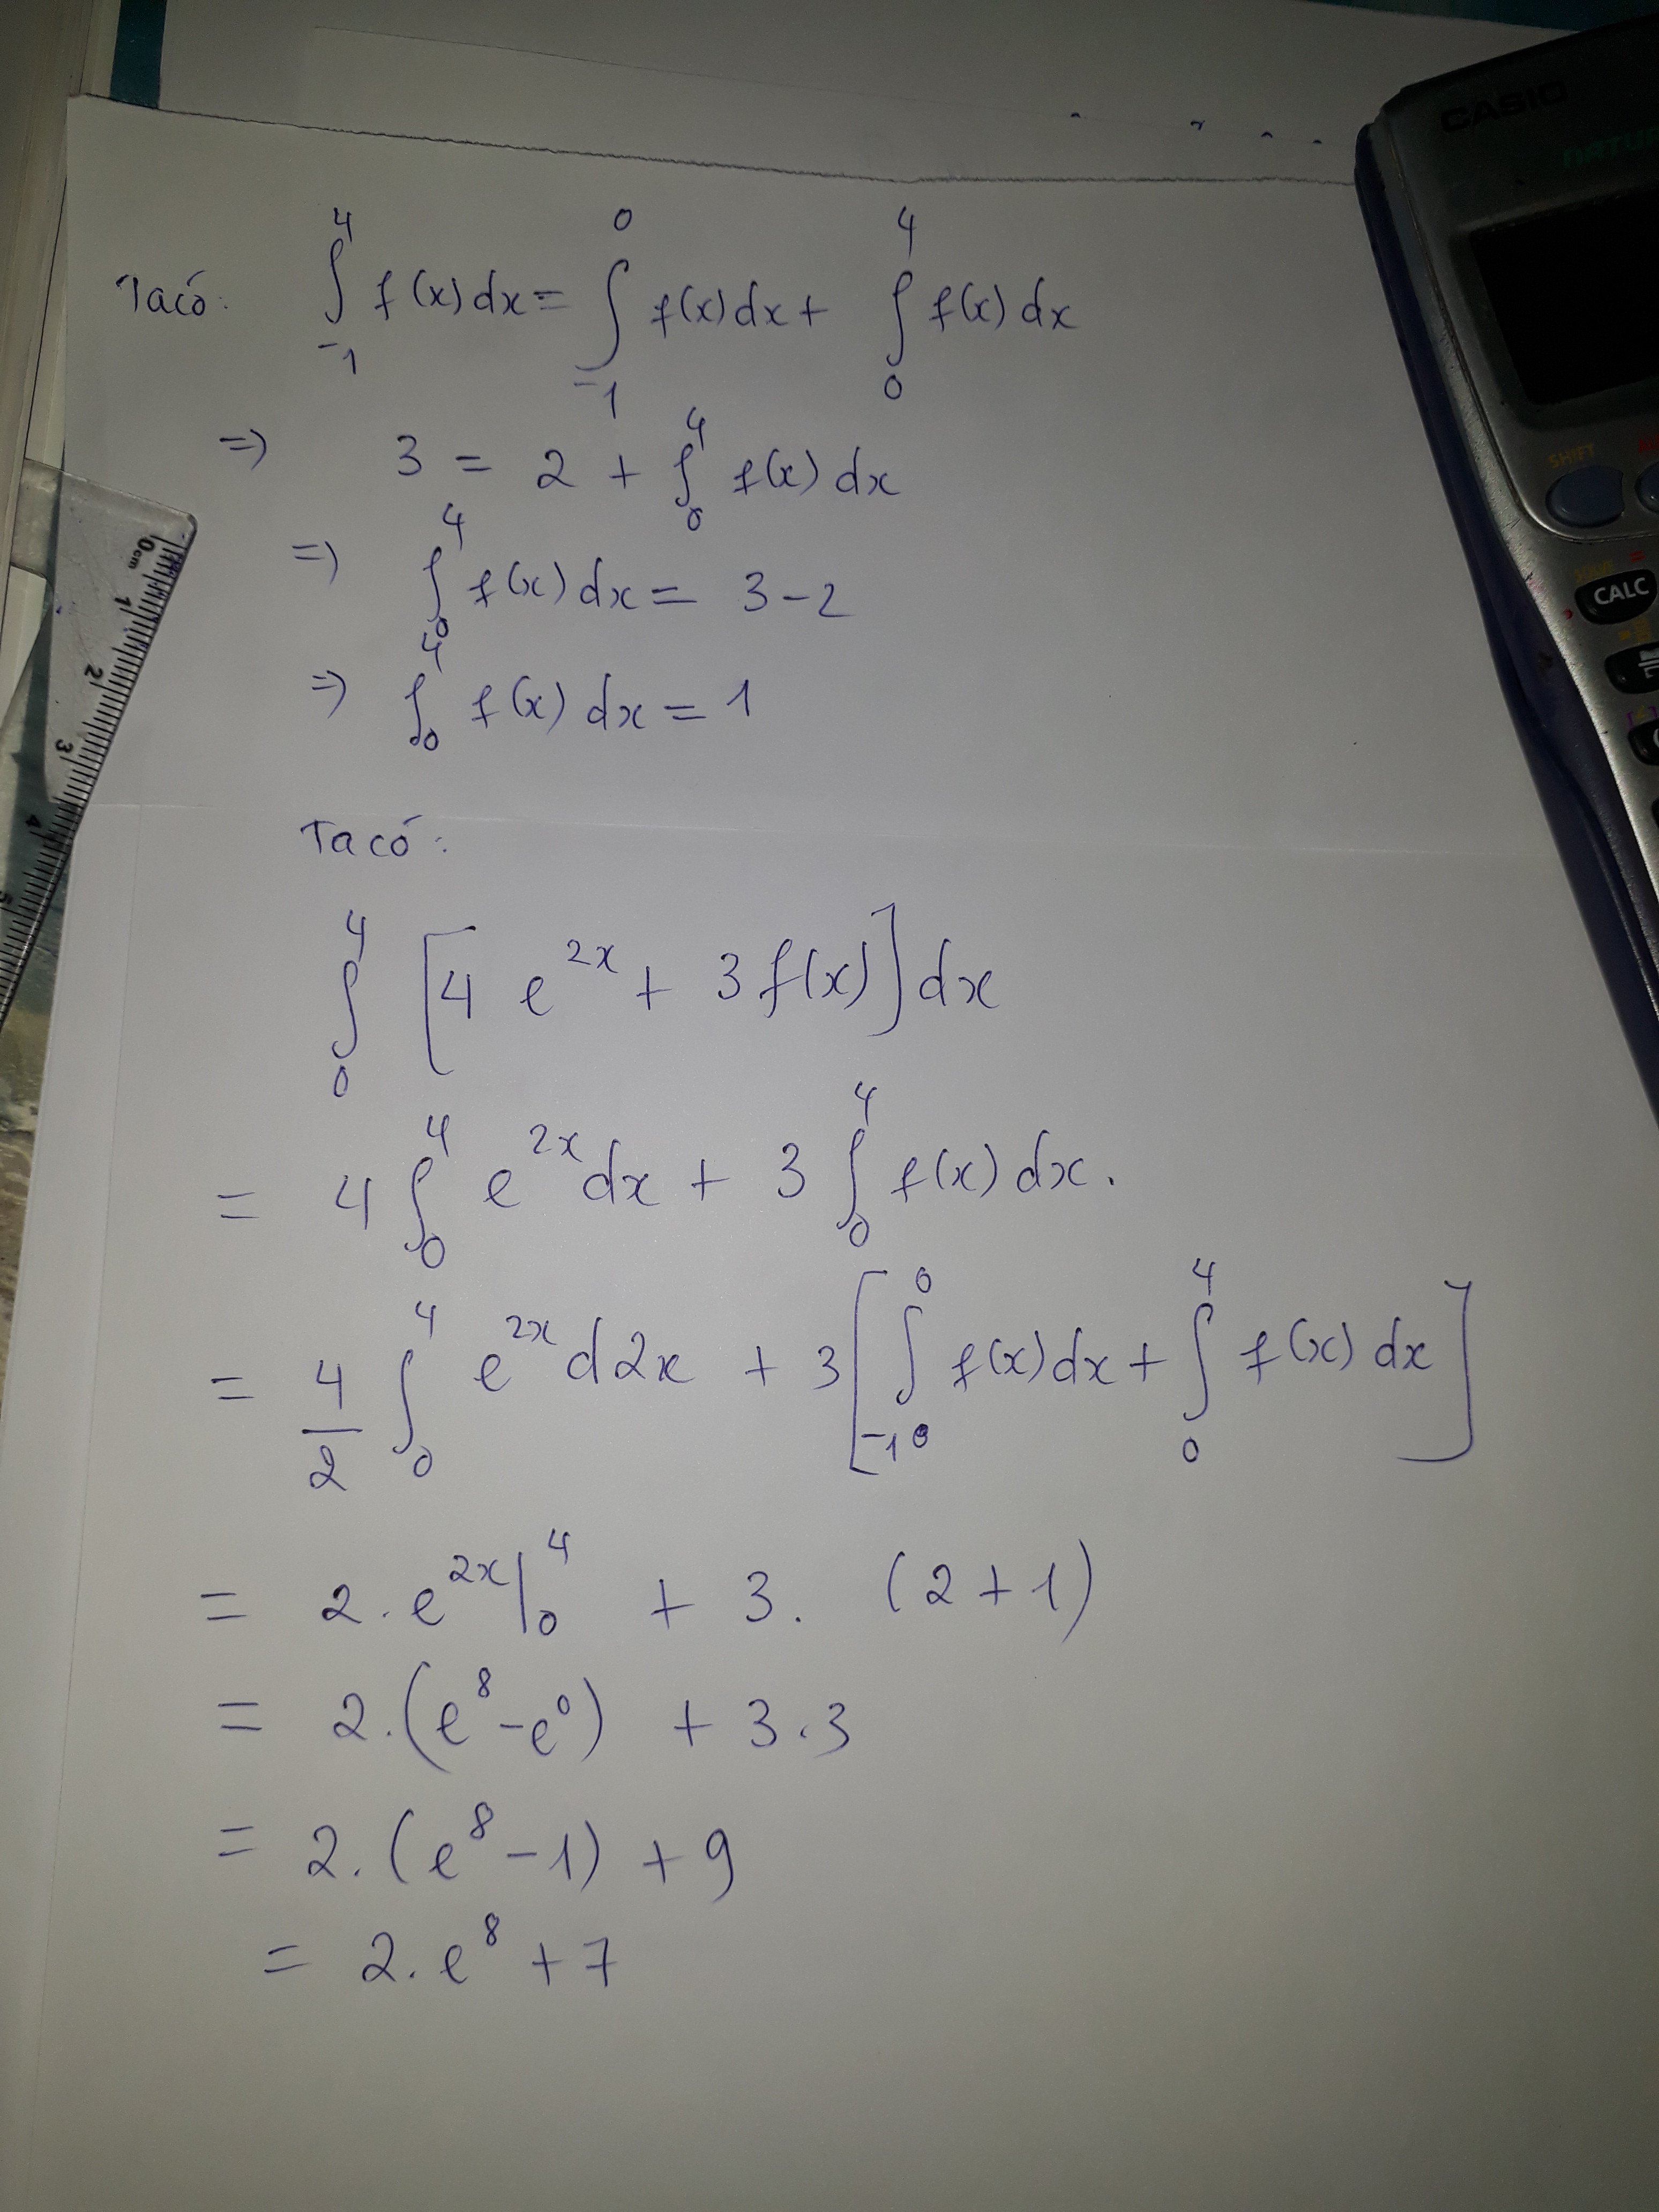 CASIO
NATU
Ta có: ∫_{-1}^{4} f(x)dx = ∫_{-1}^{0} f(x)dx + ∫_{0}^{4} f(x)dx
=> 3 = 2 + ∫_{0}^{4} f(x)dx
=> ∫_{0}^{4} f(x)dx = 3-2
=> ∫_{0}^{4} f(x)dx = 1
SHIFT
CALC
0cm 1 2 3 4 5
Ta có:
∫_{0}^{4} [4 e^{2x} + 3f(x)]dx
= 4 ∫_{0}^{4} e^{2x}dx + 3 ∫_{0}^{4} f(x)dx.
= \frac{4}{2} ∫_{0}^{4} e^{2x}d2x + 3[∫_{-1}^{0} f(x)dx + ∫_{0}^{4} f(x)dx]
= 2.e^{2x}|_{0}^{4} + 3. (2+1)
= 2.(e^{8}-e^{0}) + 3.3
= 2.(e^{8}-1) + 9
= 2.e^{8} + 7